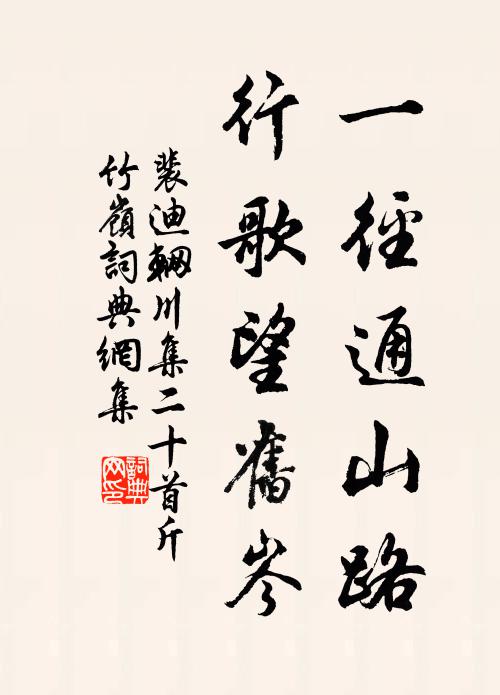 一徑通山路
行歌望舊岑
裴迪輞川集二十首斤
竹嶺詞典網集
詞典網印